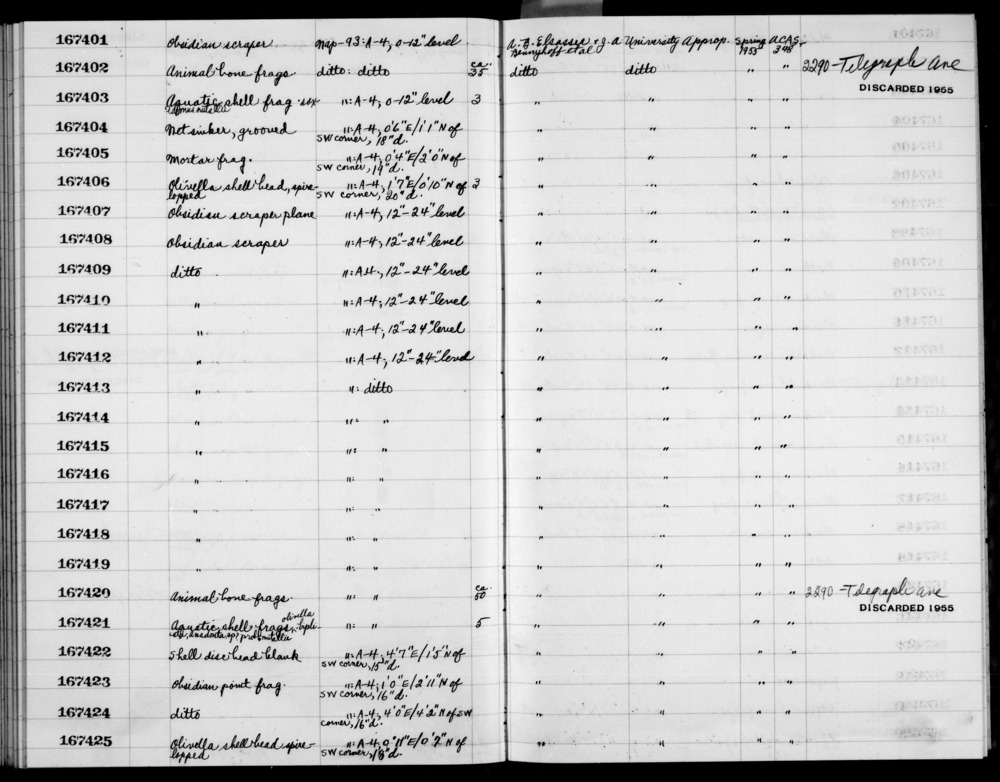 167401 Obsidian scraper Nap-93: A-4, 0-12" level A. B. Elsasser + J. A. Bennyhoff et al University Approp. Spring 1955 ACAS. 348
167402 Animal bone frags ditto: ditto ca. 35 ditto ditto " " 2290-Telegraph Ave
DISCARDED 1955
167403 Aquatic shell frag ": A-4; 0-12" level 3 " " " "
167404 Net sinker, grooved ": A-4; 0'6"E/1'1"N of SW corner, 18"d. " " " "
167405 Mortar frag. ": A-4; 0'4"E/2'0"N of SW corner, 19"d. " " " "
167406 Olivella shell bead, spire-lopped ": A-4; 1'7"E/0'10"N of SW corner, 20"d. 3 " " " "
167407 Obsidian scraper plane ": A-4; 12"-24" level " " " "
167408 Obsidian scraper ": A-4; 12"-24" level " " " "
167409 ditto ": A4; 12"-24" level " " " "
167410 " ": A-4; 12"-24" level " " " "
167411 " ": A-4; 12"-24" level " " " "
167412 " ": A-4; 12"-24" level " " " "
167413 " ": ditto " " " "
167414 " ": " " " " "
167415 " ": " " " " "
167416 " ": " " " " "
167417 " ": " " " " "
167418 " ": " " " " "
167419 " ": " " " " "
167420 Animal bone frags. ": " ca. 50 " " " " 2290-Telegraph Ave
DISCARDED 1955
167421 Aquatic shell frags olivella ": " 5 " " " "
167422 Shell disc bead blank ": A-4; 4'7"E/1'5"N of SW corner, 15"d. " " " "
167423 Obsidian point frag. ": A-4; 1'0"E/2'11"N of SW corner, 16"d. " " " "
167424 ditto ": A-4; 4'0"E/4'2"N of SW corner, 16"d. " " " "
167425 Olivella shell bead spire-lopped ": A-4; 0'11"E/0'9"N of SW corner, 18"d. " " " "